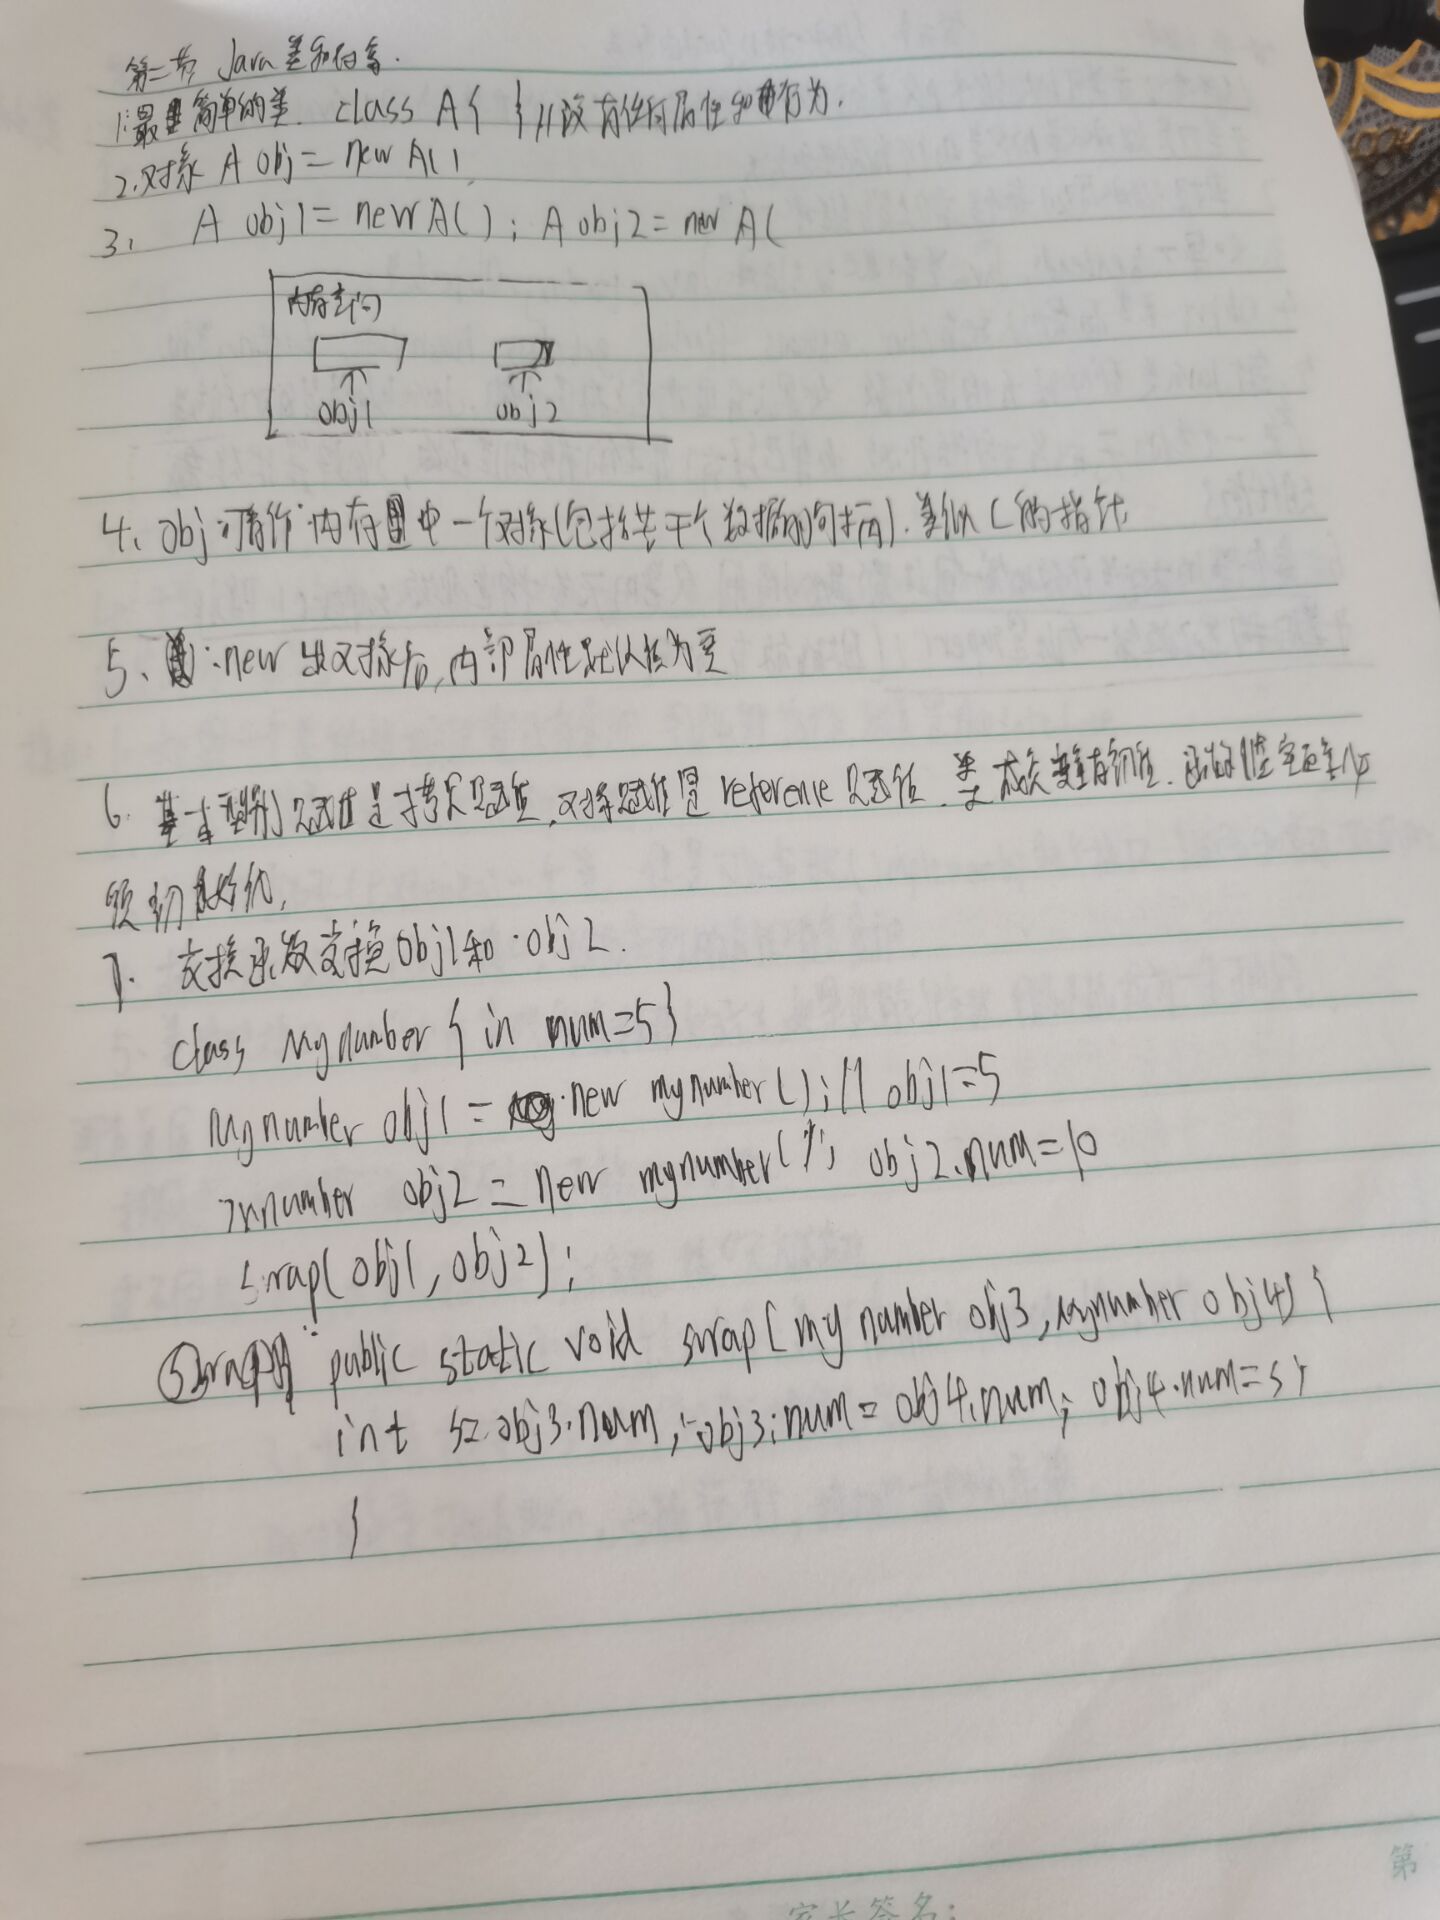 第二节 Java 类和对象.
1.最简单的类. class A{ }//没有任何属性和行为.
2.对象 A obj = new A()
3. A obj1 = new A(); A obj2 = new A(
内存空间
obj1 obj2
4. obj 可看作 内存中一个对象(包括若干个数据的句柄). 类似 C 的指针
5、 new 出对象后,内部属性默认值为至
6. 基本型别赋值是拷贝赋值,对象赋值是 reference 赋值. 类成员变量有初值.
须初始化,
7. 交换函数交换 obj1和 obj2.
class Mynumber { in num=5}
Mynumber obj1 = new mynumber();// obj1=5
number obj2 = new mynumber(); obj2.num=10
swap(obj1, obj2);
public static void swap(my number obj3, Mynumber obj4) {
int s= obj3.num; obj3.num = obj4.num; obj4.num=s;
}
第
家长签名: